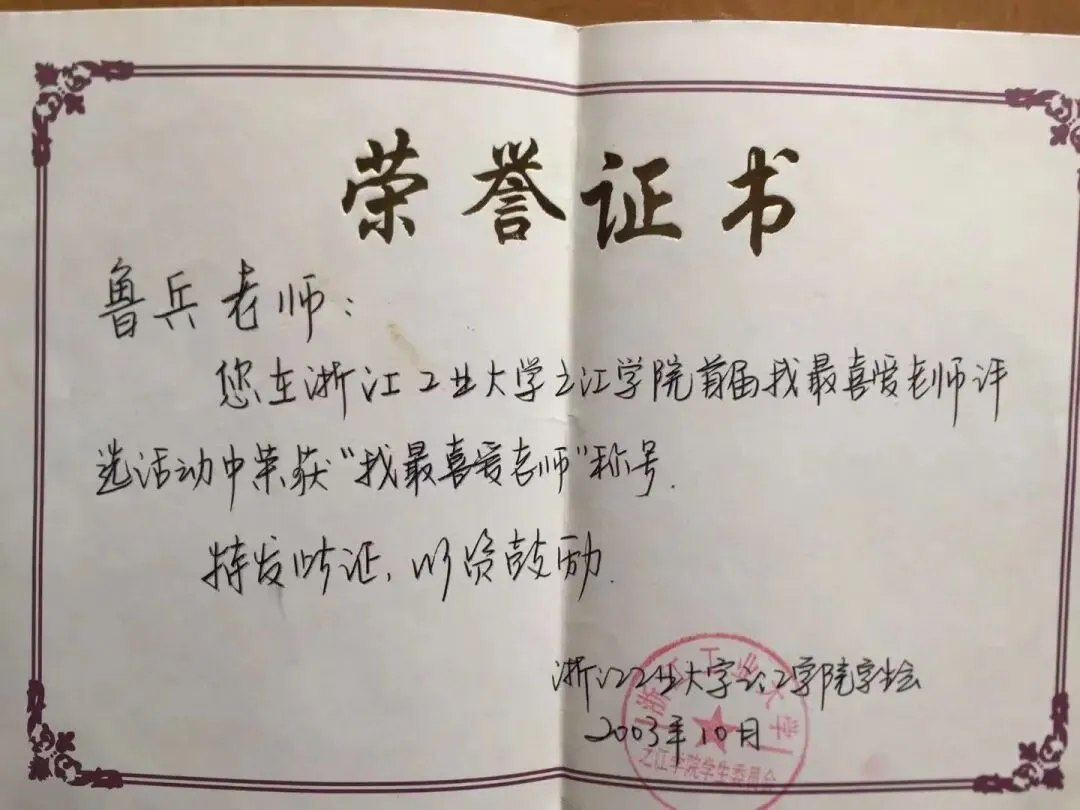 荣誉证书
鲁兵老师：
您在浙江工业大学之江学院首届我最喜爱老师评
选活动中荣获“我最喜爱老师”称号.
特发此证，以资鼓励.
浙江工业大学之江学院学生会
2003年10月
浙江工业大学
之江学院学生委员会